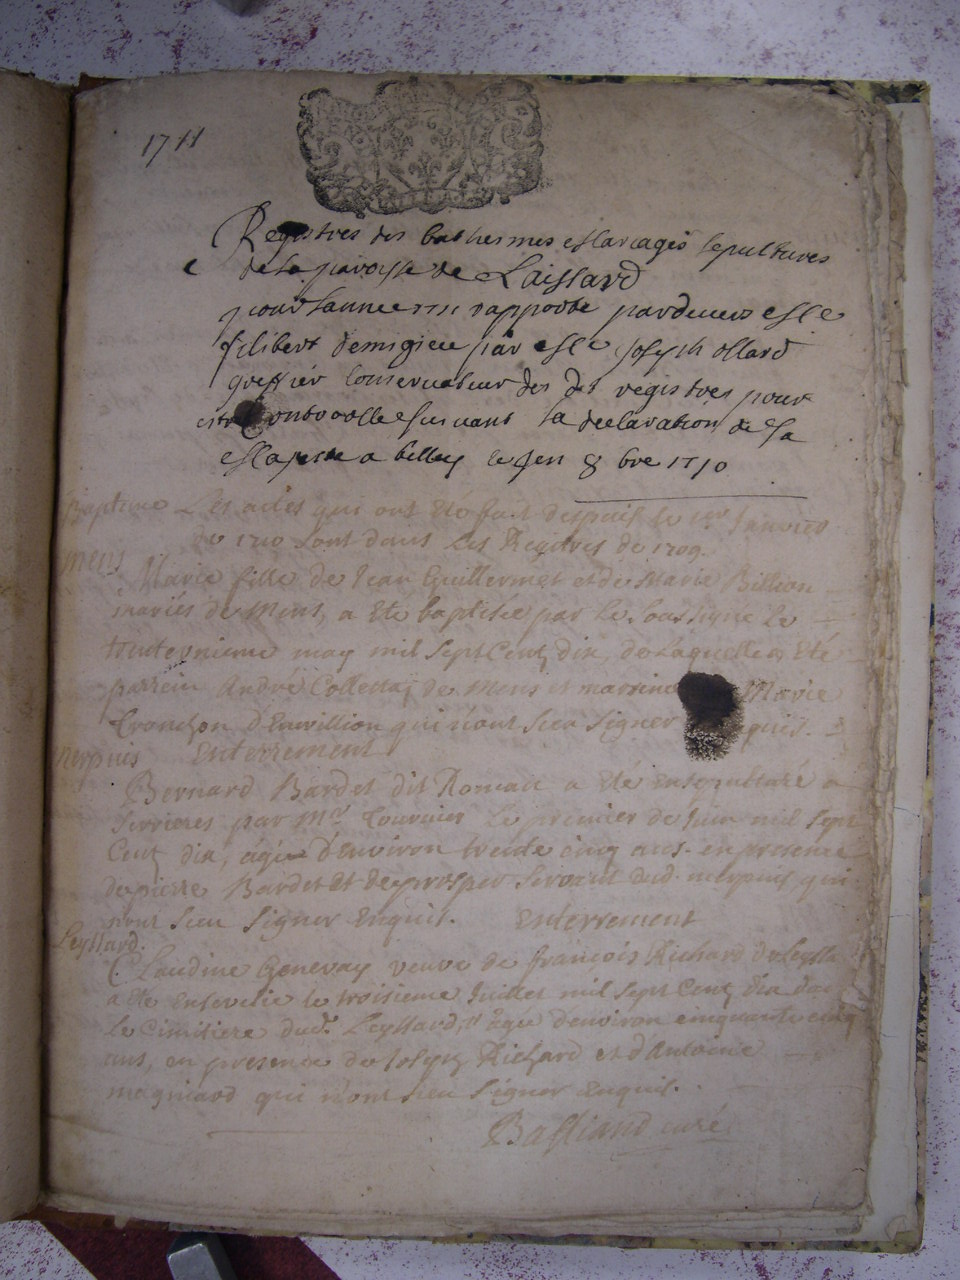 1711
Registres des bathesmes et mariages sepultures
de la paroisse de Laissard
pour lannee 1711 rapporté pardevers
filibert demigieu par Joseph ollard
greffier Conservateur des dits registres pour
estre Controolle suivant la declaration de sa
a belley le 8 bre 1710
Bapteme Les actes qui ont été fait despuis le 1er Janvier
de 1710 sont dans les Regitres de 1709.
Mens Marie fille de Jean Guillermet et de Marie Billion
mariés de Mens, a ete baptisée par le soussigné le
trentunieme may mil sept Cent dix, de laquelle a eté
parrein André Collettaz de Mens et marrine Marie
Tronchon d'Envillion qui n'ont sceu signer quis.
Merpuis Enterrement
Bernard Bardet dit Romain a eté ensepulturé a
Serrieres par Mre Tournier le premier de Juin mil sept
Cent dix, agé d'environ trente cinq ans. en presence
de pierre Bardet et de prosper Servant dud. merpuis, qui
n'ont sceu signer Enquis. Enterrement
Leyssard.
Claudine Genevay veuve de françois Richard de Leyssard
a ete Ensevelie le troisieme Juillet mil sept Cent dix dans
le Cimitiere dud. Leyssard, agée d'environ cinquante cinq
ans, en presence de Joseph Richard et d'Antoine
magniard qui n'ont sceu signer enquis.
Bastiand curé